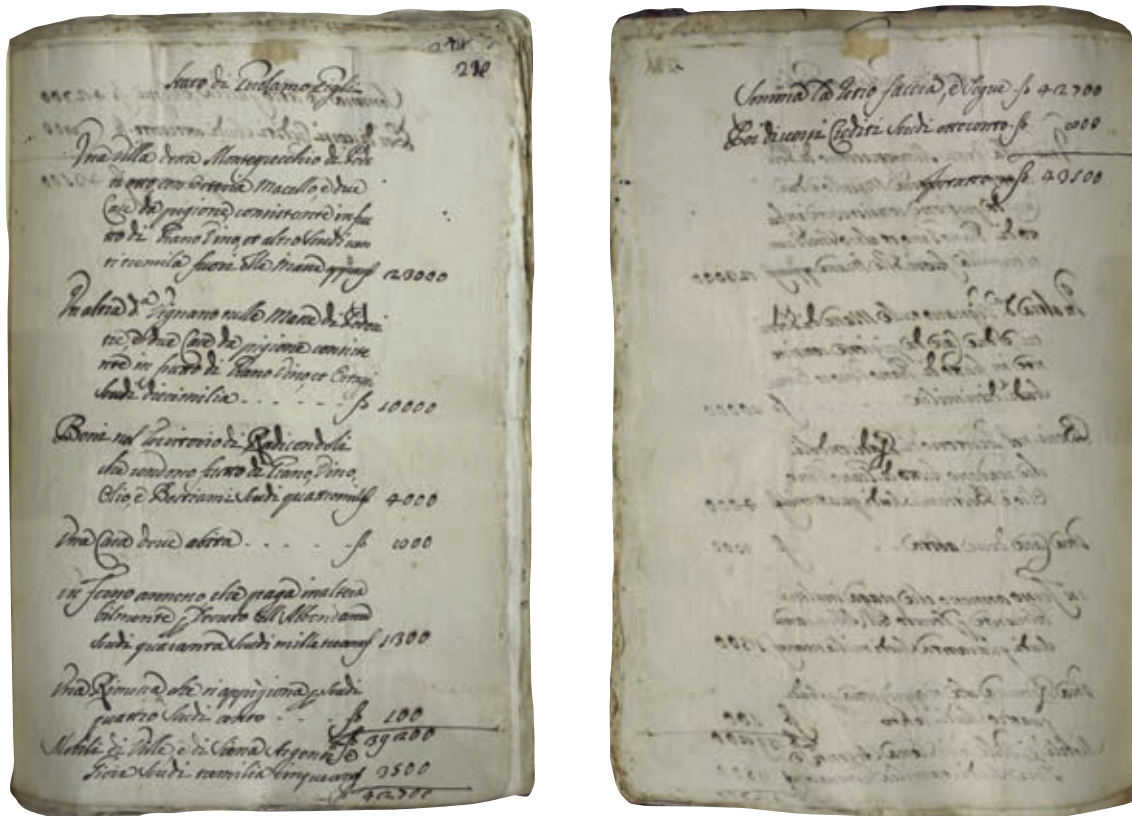 238
Stato di Girolamo Gigli
Una Villa detta Montevecchio di Pode
ri otto con Osteria Macello, e due
Case da pigione consistente in frut
to di Grano Vino, et altro Scudi ven
ti tremila fuori delle Masse 23000
Un altra d.a Vignano nelle Masse di Poderi
tre, e due Case da pigione consiste
nte in frutto di Grano Vino, et
Scudi diecimilia - - - - - 10000
Beni nel Territorio di Radicondoli
che rendono frutto di Grano, Vino,
Olio, e Bestiami Scudi quattromila 4000
Una Casa dove abita - - - - - 800
Un Censo annuo che paga
Scudi quaranta Scudi mille trecento 1300
Una Rimessa che si appigiona p Scudi
quattro Scudi cento - - - 100
39200
Mobili di Villa e di Siena Argenti e
Gioie Scudi tremilia cinquecento 3500
42700
Somma la terio faccia, e segue 42700
Poi diversi Crediti Scudi ottocento 800
43500